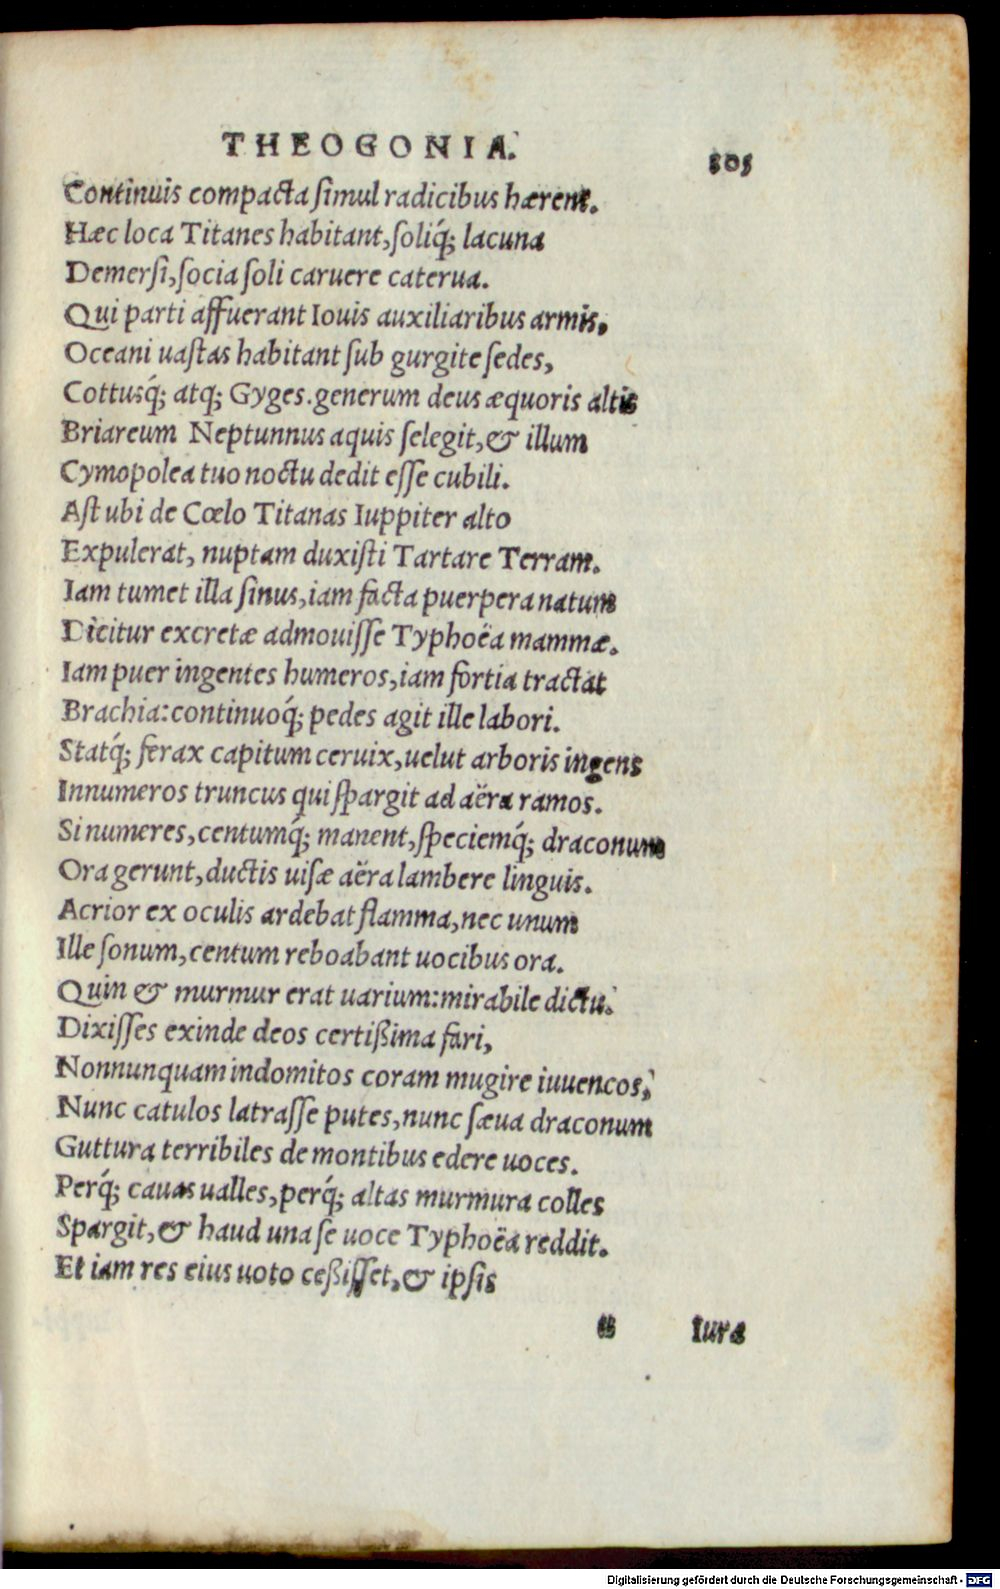 THEOGONIA. 305
Continuis compacta ſimul radicibus hærent.
Hæc loca Titanes habitant, ſoliq́; lacuna
Demerſi, ſocia ſoli caruere caterua.
Qui parti affuerant Iouis auxiliaribus armis,
Oceani uaſtas habitant ſub gurgite ſedes,
Cottusq́; atq; Gyges. generum deus æquoris altis
Briareum Neptunnus aquis ſelegit, & illum
Cymopolea tuo noctu dedit eſſe cubili.
Aſt ubi de Cœlo Titanas Iuppiter alto
Expulerat, nuptam duxiſti Tartare Terram.
Iam tumet illa ſinus, iam facta puerpera natum
Dicitur excretæ admouiſſe Typhoëa mammæ.
Iam puer ingentes humeros, iam fortia tractat
Brachia: continuoq́; pedes agit ille labori.
Statq́; ferax capitum ceruix, uelut arboris ingens
Innumeros truncus qui ſpargit ad aëra ramos.
Si numeres, centumq́; manent, ſpeciemq́; draconum
Ora gerunt, ductis uiſæ aëra lambere linguis.
Acrior ex oculis ardebat flamma, nec unum
Ille ſonum, centum reboabant uocibus ora.
Quin & murmur erat uarium: mirabile dictu.
Dixiſſes exinde deos certißima fari,
Nonnunquam indomitos coram mugire iuuencos,
Nunc catulos latraſſe putes, nunc ſæua draconum
Guttura terribiles de montibus edere uoces.
Perq́; cauas ualles, perq́; altas murmura colles
Spargit, & haud una ſe uoce Typhoëa reddit.
Et iam res eius uoto ceßiſſet, & ipſis
Iura
Digitalisierung gefördert durch die Deutsche Forschungsgemeinschaft - DFG